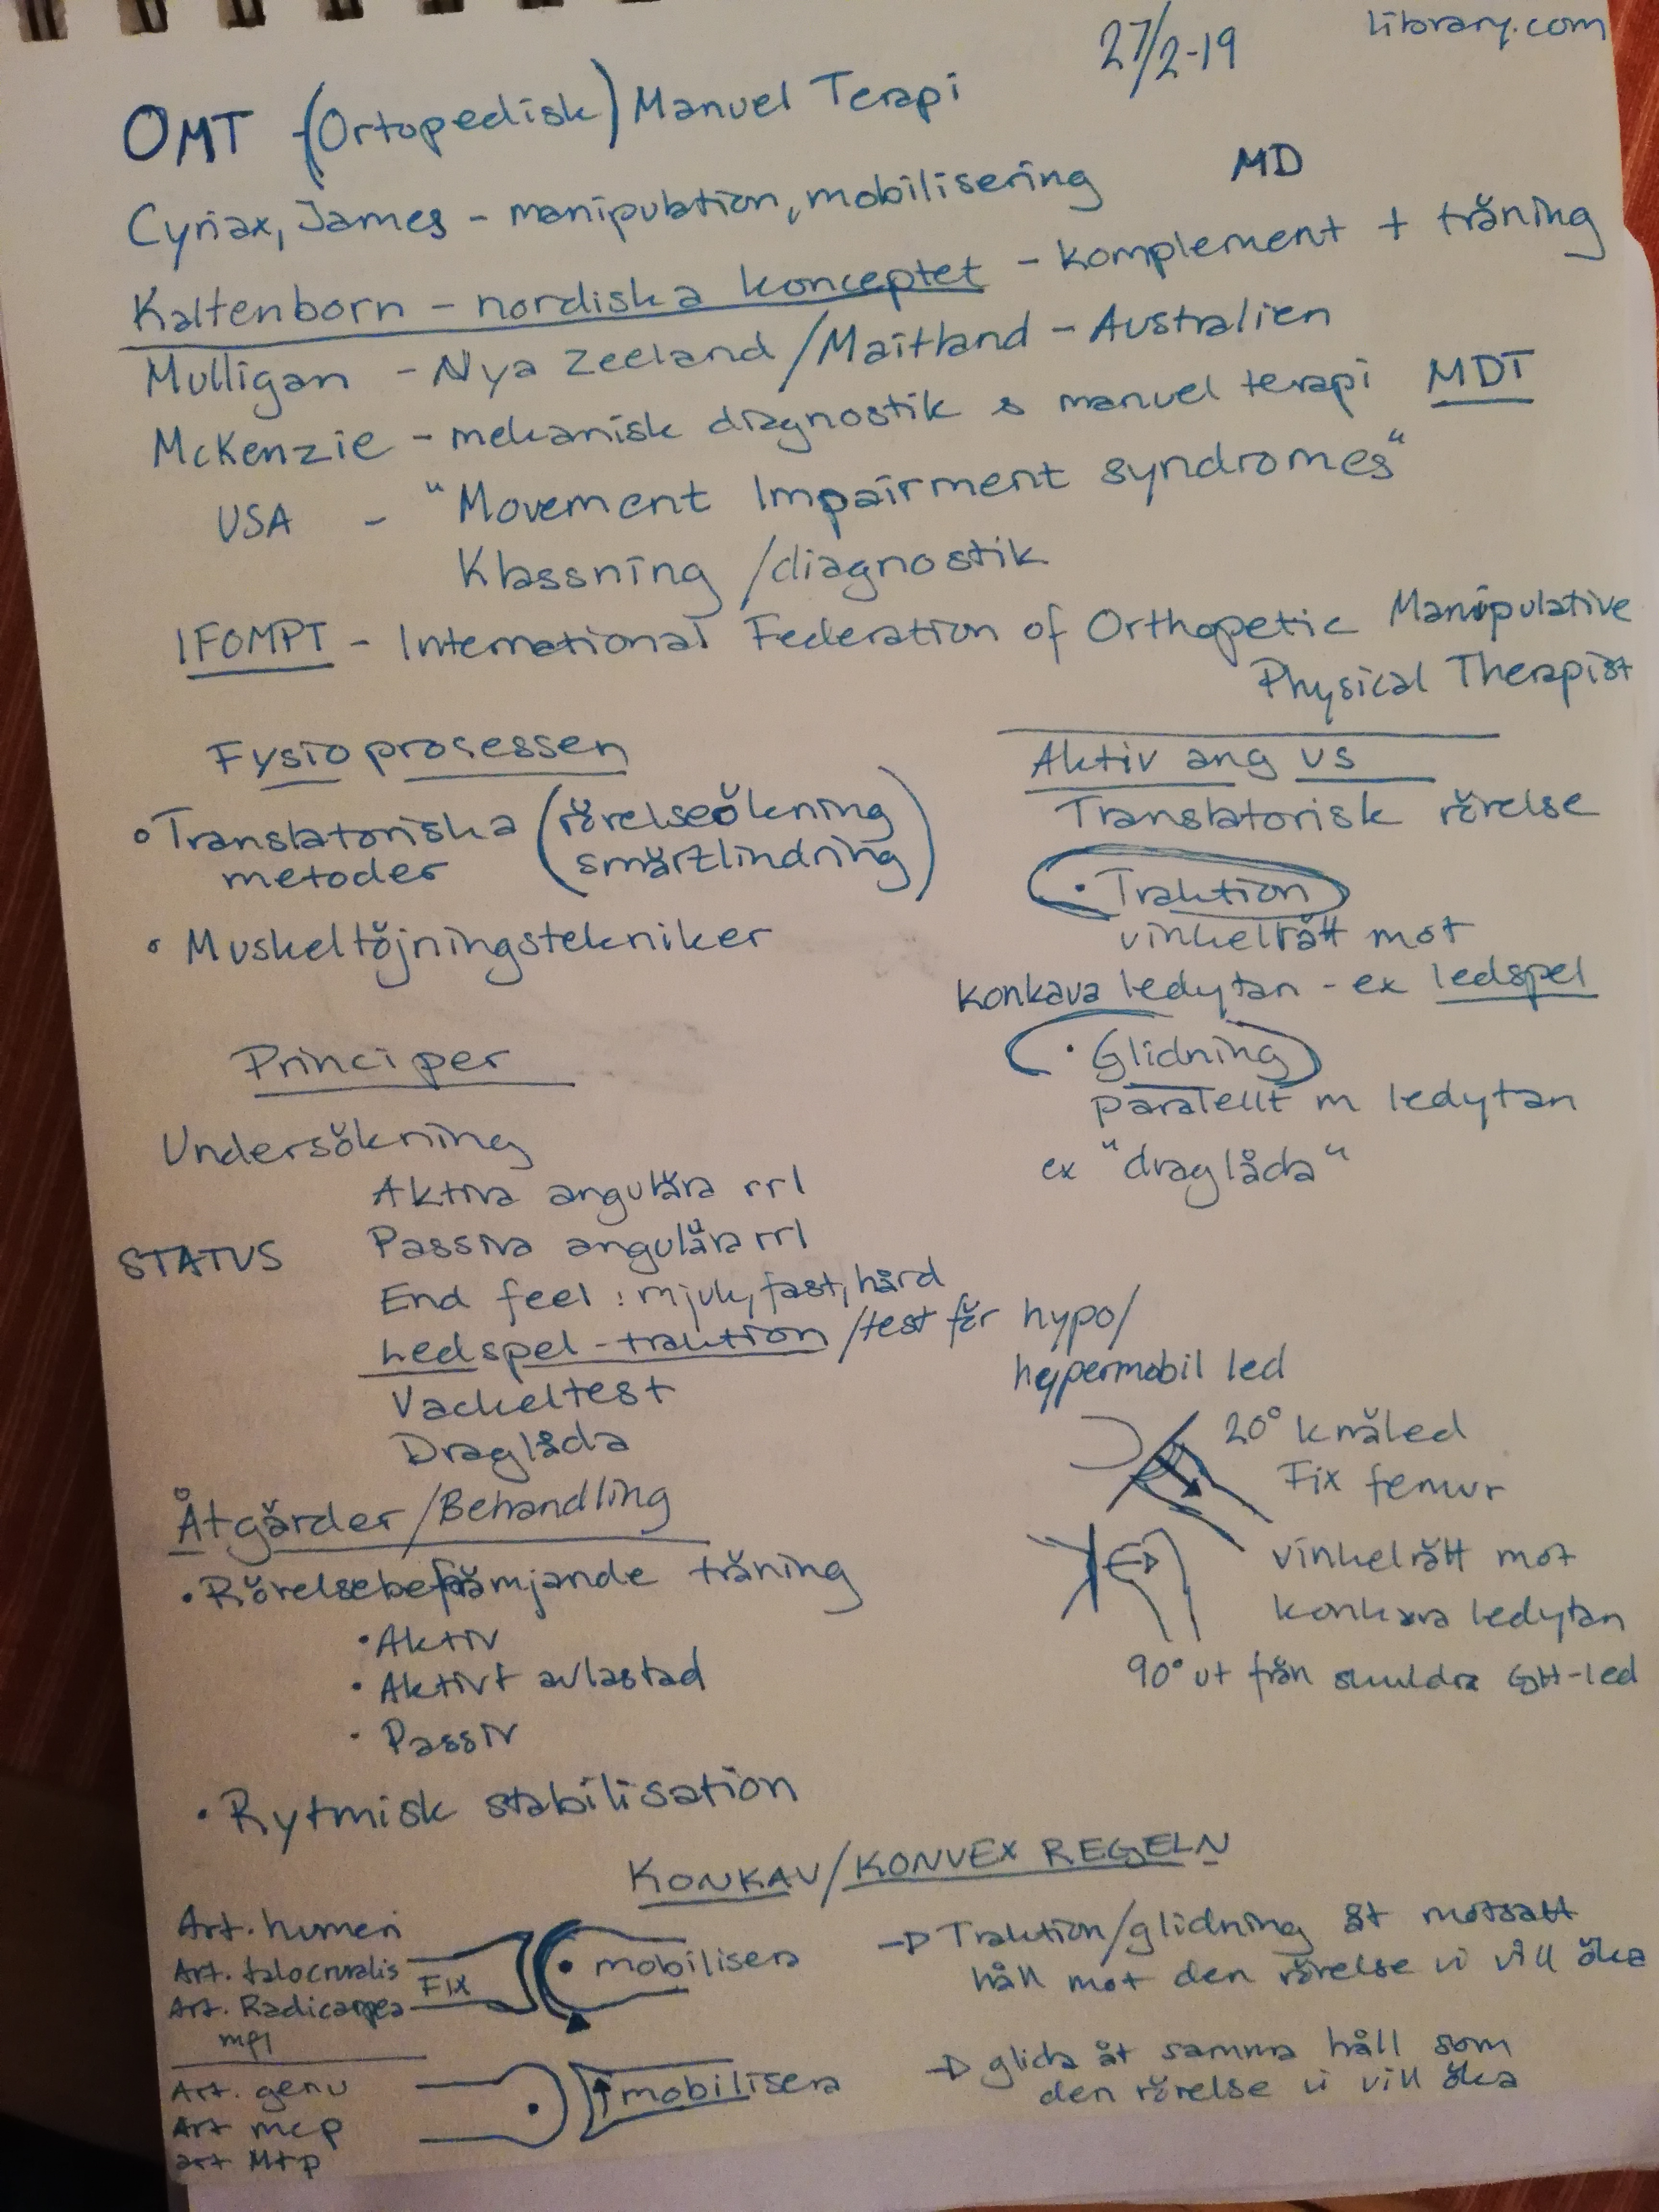 27/2-19
library.com
OMT (Ortopedisk) Manuel Terapi
MD
Cyriax, James - manipulation, mobilisering
Kaltenborn - nordiska konceptet - komplement + träning
Mulligan - Nya Zeeland / Maitland - Australien
McKenzie - mekanisk diagnostik & manuel terapi MDT
USA - "Movement Impairment syndromes"
Klassning / diagnostik
IFOMPT - International Federation of Orthopetic Manipulative
Physical Therapist
Fysioprosessen
• Translatoriska (rörelseökning
metoder smärtlindring)
• Muskeltöjningstekniker
Aktiv ang vs
Translatorisk rörelse
• Traktion
vinkelrätt mot
konkava ledytan - ex ledspel
• Glidning
parallellt m ledytan
ex "draglåda"
Principer
Undersökning
Aktiva angulära rrl
STATUS
Passiva angulära rrl
End feel : mjuk, fast, hård
Ledspel - traktion / test för hypo/
hypermobil led
Vackeltest
Draglåda
20° knäled
Fix femur
vinkelrätt mot
konkava ledytan
90° ut från skuldra GH-led
Åtgärder / Behandling
• Rörelsebefrämjande träning
• Aktiv
• Aktivt avlastad
• Passiv
• Rytmisk stabilisation
KONKAV/KONVEX REGELN
Art. humeri
Art. talocruralis
Art. Radicarpea
FIX
mobilisera
→ Traktion/glidning åt motsatt
håll mot den rörelse vi vill öka
Art. genu
Art mcp
art Mtp
mobilisera
→ glida åt samma håll som
den rörelse vi vill öka